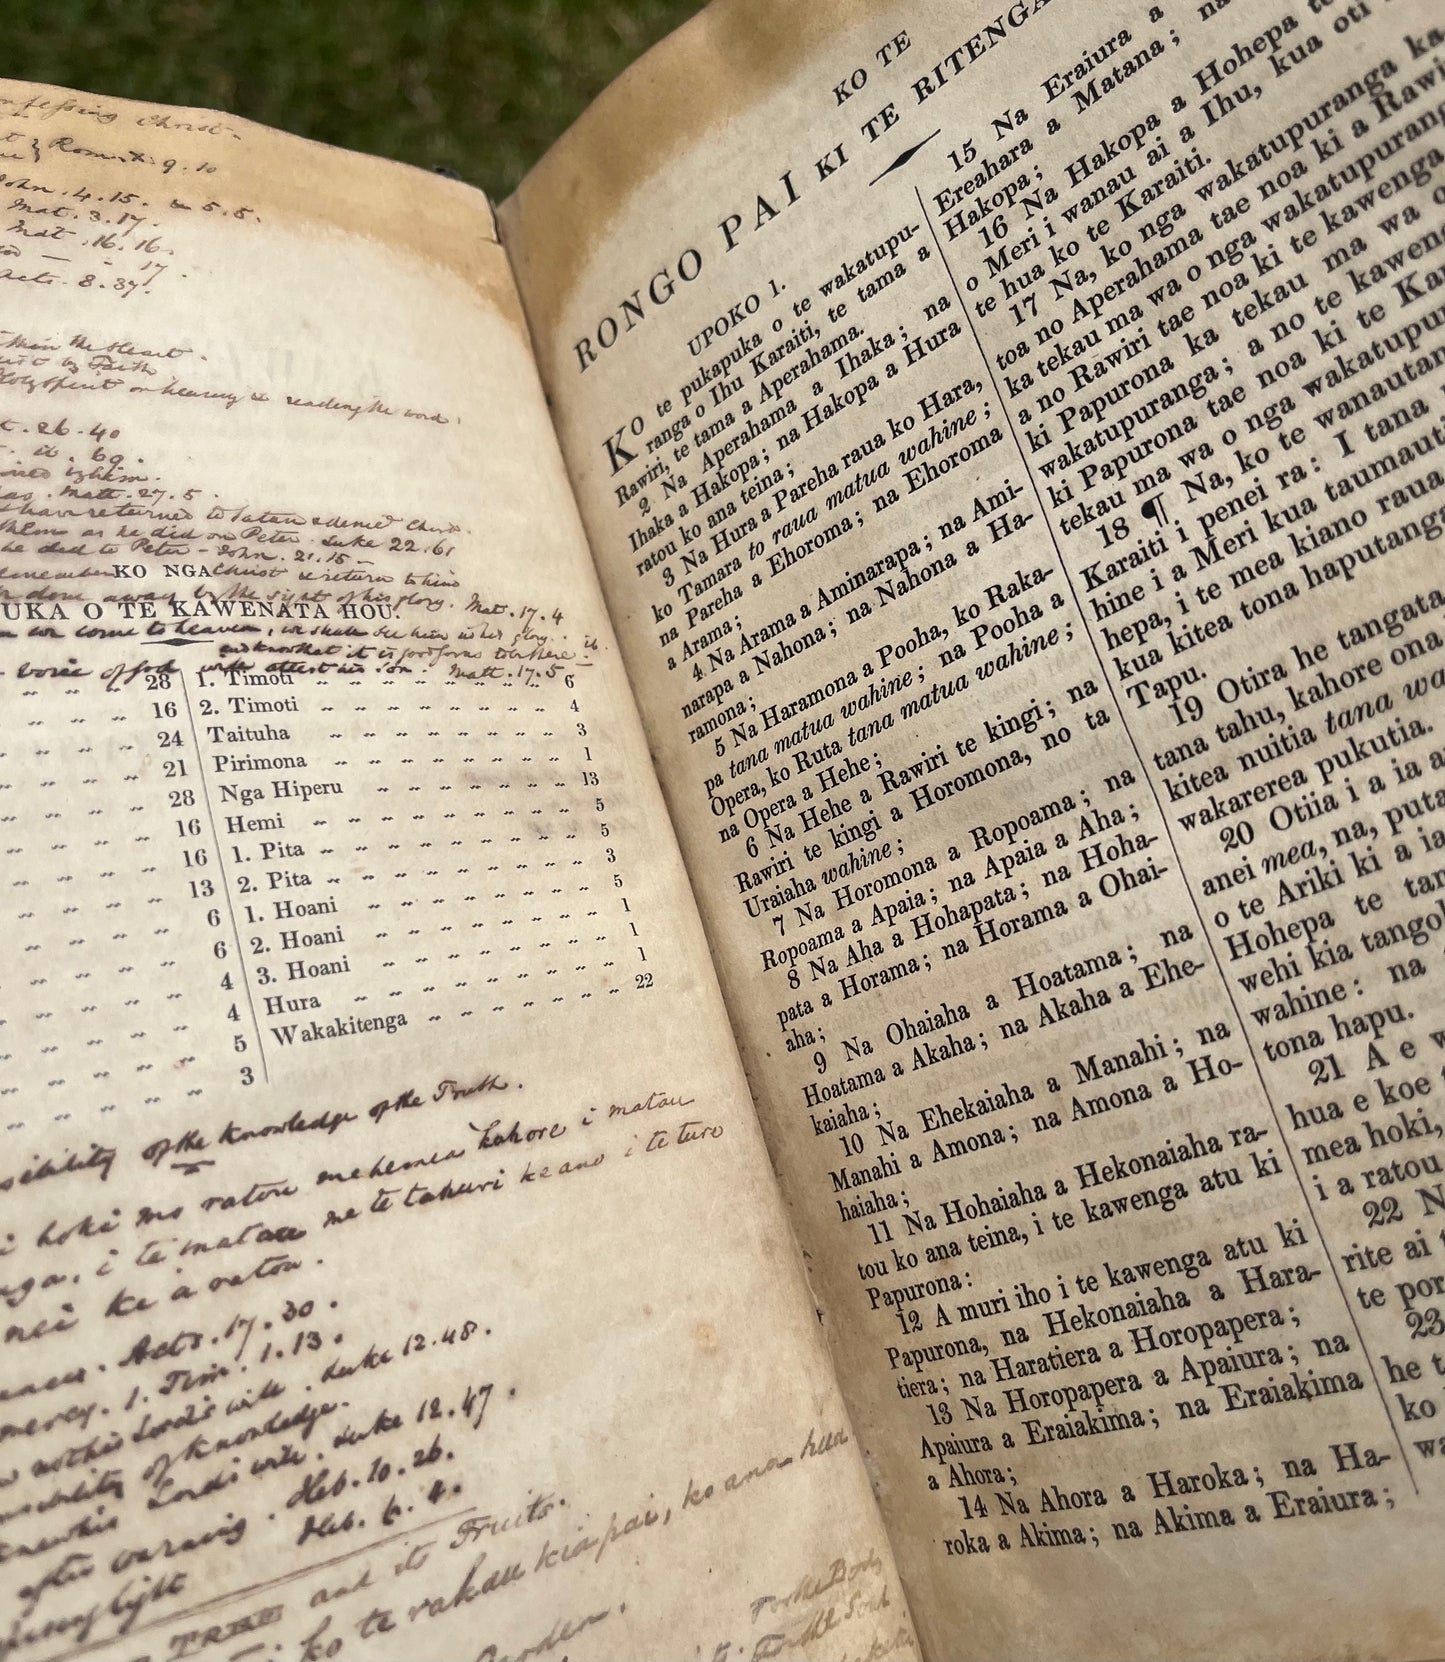 Confessing Christ
Rom. x. 9. 10
John. 4. 15. & 5. 5.
Mat. 3. 17.
Mat. 16. 16.
17.
Acts. 8. 37.
the Heart.
by Faith
Holy Spirit on hearing & reading the word.
26. 40
69.
Matt. 27. 5.
have returned to Satan & denied Christ.
them as he did on Peter. Luke 22. 61
he did to Peter - John. 21. 15 -
remember Christ & return to him
KO NGA
done away by the sight of his glory. Mat. 17. 4
UKA O TE KAWENATA HOU.
we come to heaven, we shall see him in his glory.
and know that it is good for us to be here.
voice of God will attest his Son. Matt. 17. 5
28
16
24
21
28
16
16
13
6
6
4
4
5
3
1. Timoti 6
2. Timoti 4
Taituha 3
Pirimona 1
Nga Hiperu 13
Hemi 5
1. Pita 5
2. Pita 3
1. Hoani 5
2. Hoani 1
3. Hoani 1
Hura 1
Wakakitenga 22
sibility of the Knowledge of the Truth.
hoki mo ratou mehemea kahore i matau
nga, i te matau me te tahuri ke ano i te ture
nei ki a ratou.
Acts. 17. 30.
mercy. 1. Tim. 1. 13.
Lord's will. Luke 12. 48.
sibility of Knowledge.
Lord's will. Luke 12. 47.
after warning. Heb. 10. 26.
Heb. 6. 4.
TREE and its Fruits.
ko te rakau kia pai, ko ana hua
Garden.
For the Body
For the Soul
KO TE
RONGO PAI KI TE RITENGA
UPOKO 1.
KO te pukapuka o te wakatupu-
ranga o Ihu Karaiti, te tama a
Rawiri, te tama a Aperahama.
2 Na Aperahama a Ihaka; na
Ihaka a Hakopa; na Hakopa a Hura
ratou ko ana teina;
3 Na Hura a Pareha raua ko Hara,
ko Tamara to raua matua wahine;
na Pareha a Ehoroma; na Ehoroma
a Arama;
4 Na Arama a Aminarapa; na Ami-
narapa a Nahona; na Nahona a Ha-
ramona;
5 Na Haramona a Pooha, ko Raka-
pa tana matua wahine; na Pooha a
Opera, ko Ruta tana matua wahine;
na Opera a Hehe;
6 Na Hehe a Rawiri te kingi; na
Rawiri te kingi a Horomona, no ta
Uraiaha wahine;
7 Na Horomona a Ropoama; na
Ropoama a Apaia; na Apaia a Aha;
8 Na Aha a Hohapata; na Hoha-
pata a Horama; na Horama a Ohai-
aha;
9 Na Ohaiaha a Hoatama; na
Hoatama a Akaha; na Akaha a Ehe-
kaiaha;
10 Na Ehekaiaha a Manahi; na
Manahi a Amona; na Amona a Ho-
haiaha;
11 Na Hohaiaha a Hekonaiaha ra-
tou ko ana teina, i te kawenga atu ki
Papurona:
12 A muri iho i te kawenga atu ki
Papurona, na Hekonaiaha a Hara-
tiera; na Haratiera a Horopapera;
13 Na Horopapera a Apaiura; na
Apaiura a Eraiakima; na Eraiakima
a Ahora;
14 Na Ahora a Haroka; na Ha-
roka a Akima; na Akima a Eraiura;
15 Na Eraiura a
Ereahara a Matana; na
Hakopa;
16 Na Hakopa a Hohepa te
o Meri i wanau ai a Ihu, kua oti
te hua ko te Karaiti.
17 Na, ko nga wakatupuranga ka
toa no Aperahama tae noa ki a Rawi
ka tekau ma wa o nga wakatupurang
a no Rawiri tae noa ki te kawenga
ki Papurona ka tekau ma wa o
wakatupuranga; a no te kaweng
ki Papurona tae noa ki te Kar
tekau ma wa o nga wakatupur
18 ¶ Na, ko te wanautan
Karaiti i penei ra: I tana
hine i a Meri kua taumauti
hepa, i te mea kiano raua
kua kitea tona haputanga
Tapu.
19 Otira he tangata
tana tahu, kahore ona
kitea nuitia tana wa
wakarerea pukutia.
20 Otiia i a ia a
anei mea, na, puta
o te Ariki ki a ia
Hohepa te tam
wehi kia tangoh
wahine: na
tona hapu.
21 A e w
hua e koe t
mea hoki,
i a ratou
22 N
rite ai t
te por
23
he t
ko
wa